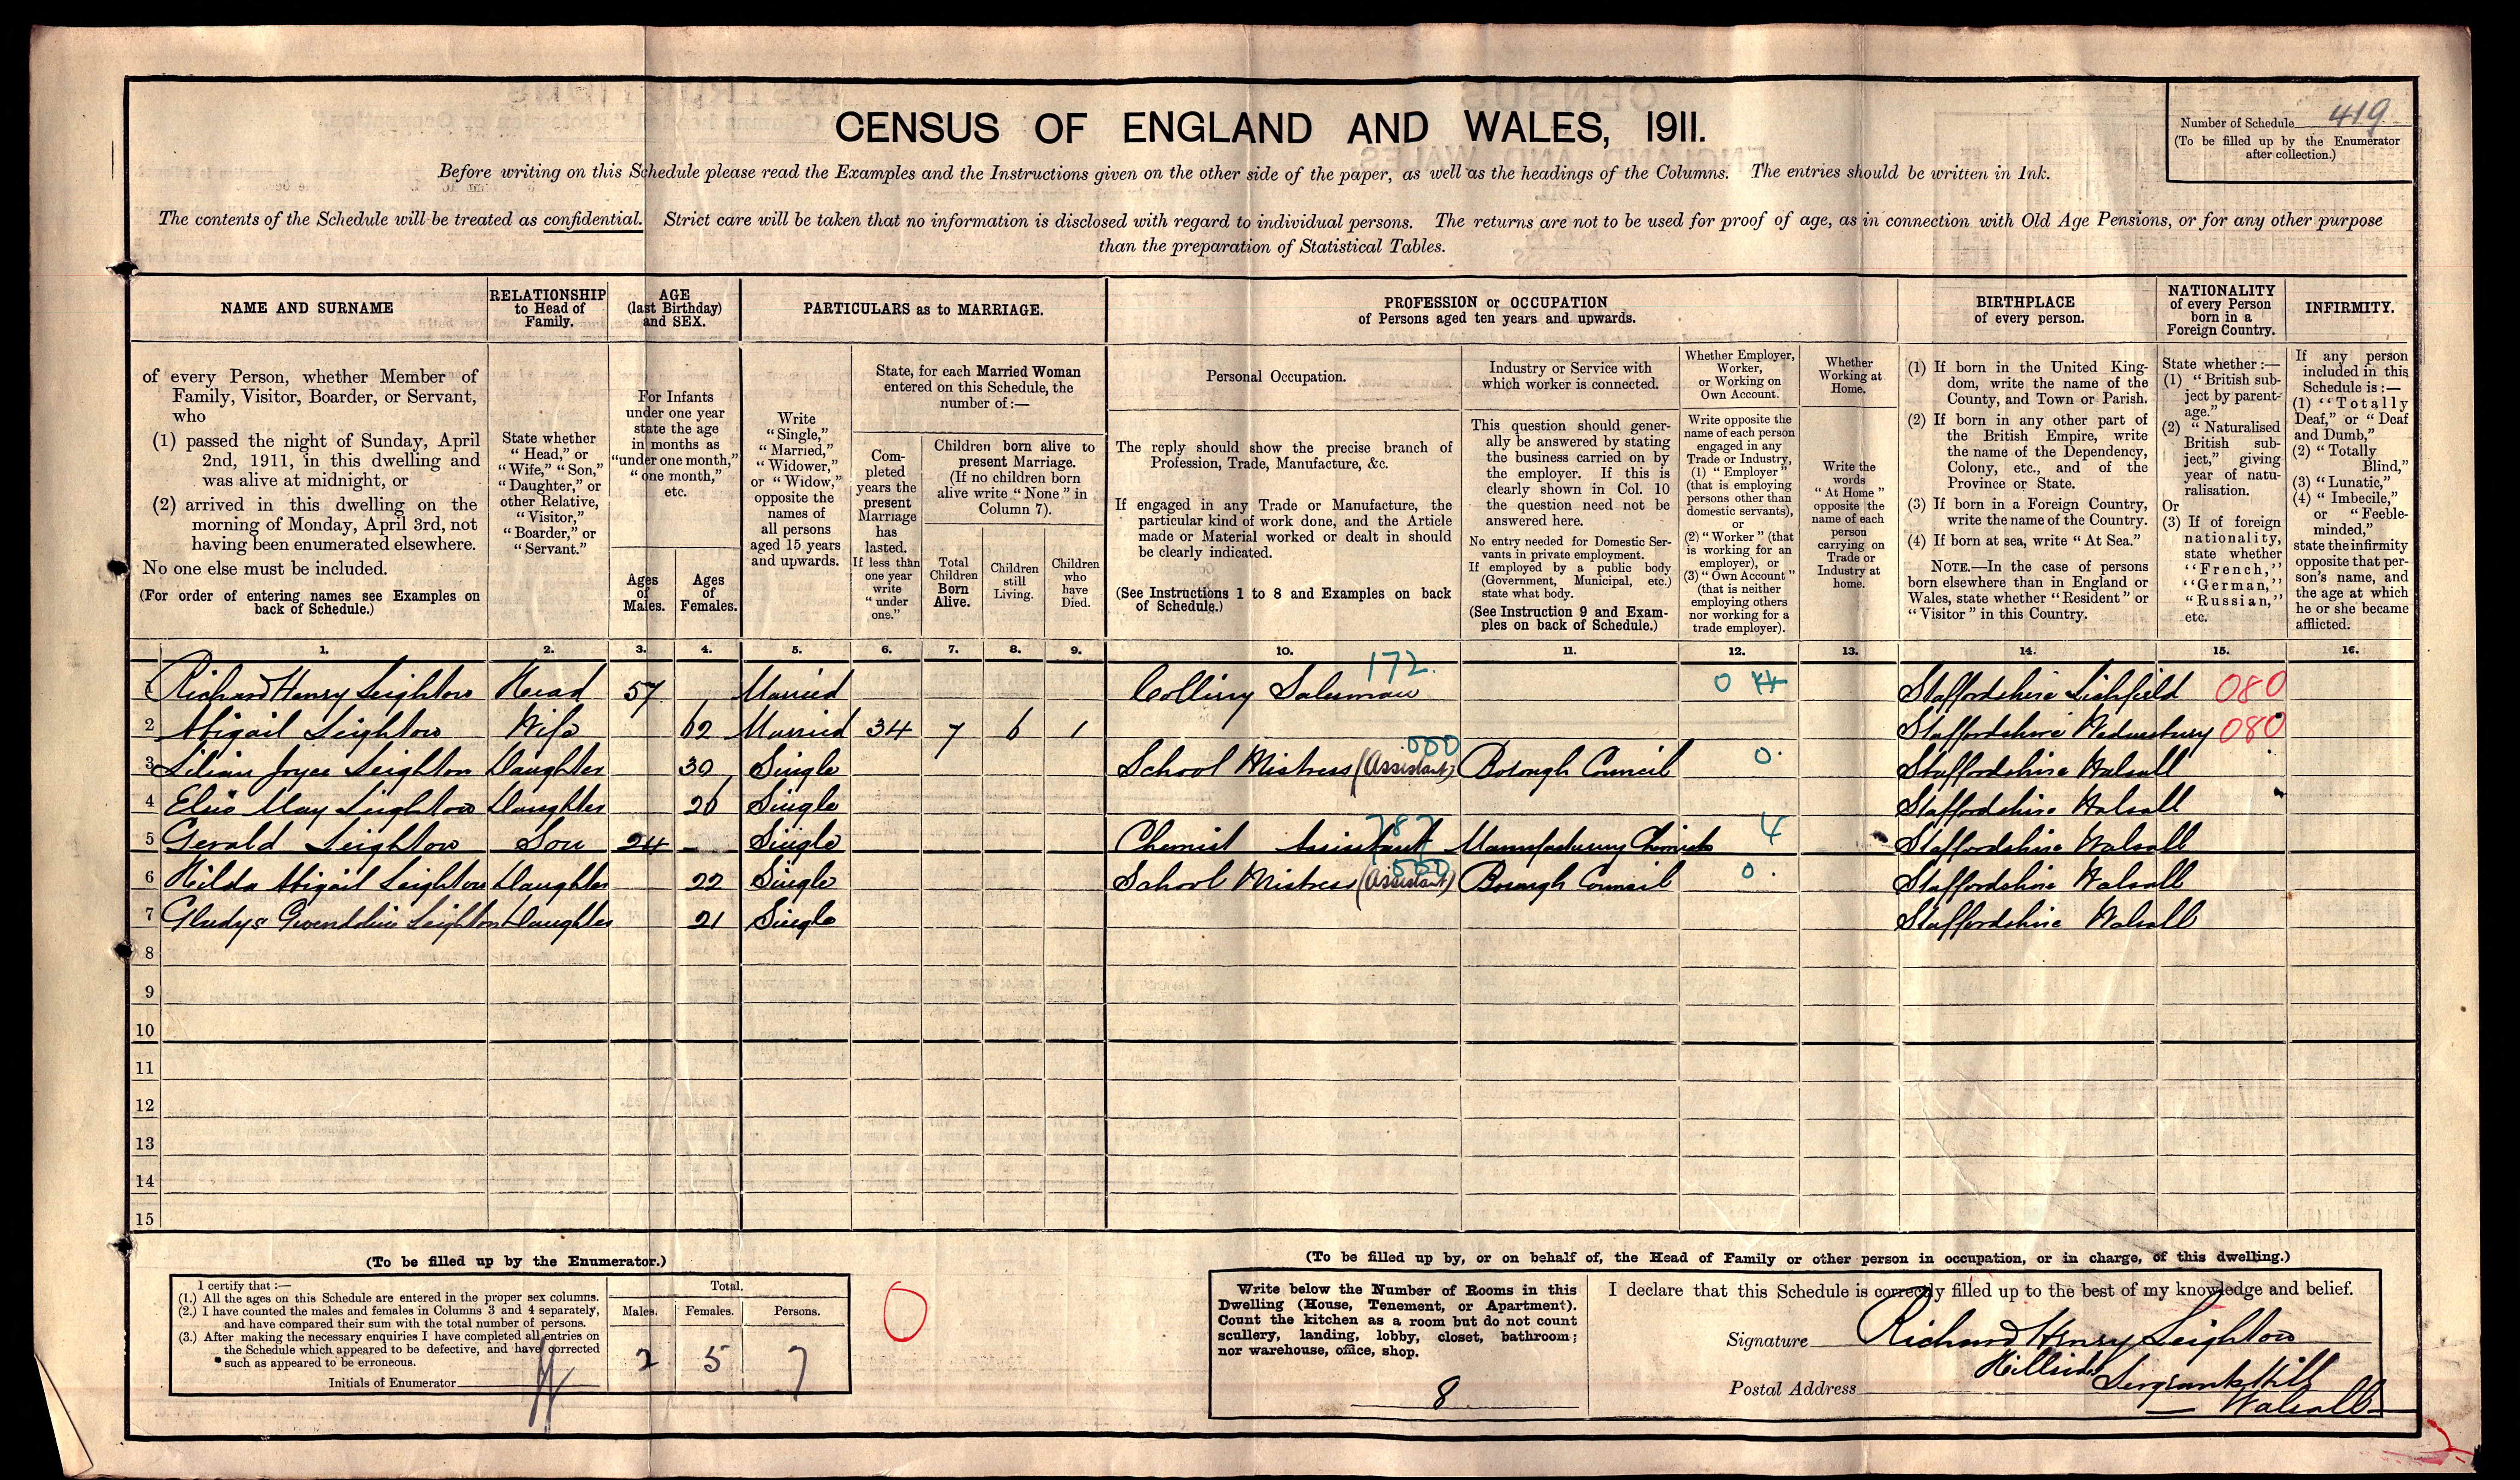 CENSUS OF ENGLAND AND WALES, 1911.
Number of Schedule 419
(To be filled up by the Enumerator
after collection.)
Before writing on this Schedule please read the Examples and the Instructions given on the other side of the paper, as well as the headings of the Columns. The entries should be written in Ink.
The contents of the Schedule will be treated as confidential. Strict care will be taken that no information is disclosed with regard to individual persons. The returns are not to be used for proof of age, as in connection with Old Age Pensions, or for any other purpose
than the preparation of Statistical Tables.
NAME AND SURNAME
of every Person, whether Member of
Family, Visitor, Boarder, or Servant,
who
(1) passed the night of Sunday, April
2nd, 1911, in this dwelling and
was alive at midnight, or
(2) arrived in this dwelling on the
morning of Monday, April 3rd, not
having been enumerated elsewhere.
No one else must be included.
(For order of entering names see Examples on
back of Schedule.)
RELATIONSHIP
to Head of
Family.
State whether
"Head," or
"Wife," "Son,"
"Daughter," or
other Relative,
"Visitor,"
"Boarder," or
"Servant."
AGE
(last Birthday)
and SEX.
For Infants
under one year
state the age
in months as
"under one month,"
"one month,"
etc.
Ages
of
Males.
Ages
of
Females.
PARTICULARS as to MARRIAGE.
Write
"Single,"
"Married,"
"Widower,"
or "Widow,"
opposite the
names of
all persons
aged 15 years
and upwards.
State, for each Married Woman
entered on this Schedule, the
number of :—
Com-
pleted
years the
present
Marriage
has
lasted.
If less than
one year
write
"under
one."
Children born alive to
present Marriage.
(If no children born
alive write "None" in
Column 7).
Total
Children
Born
Alive.
Children
still
Living.
Children
who
have
Died.
PROFESSION or OCCUPATION
of Persons aged ten years and upwards.
Personal Occupation.
The reply should show the precise branch of
Profession, Trade, Manufacture, &c.
If engaged in any Trade or Manufacture, the
particular kind of work done, and the Article
made or Material worked or dealt in should
be clearly indicated.
(See Instructions 1 to 8 and Examples on back
of Schedule.)
Industry or Service with
which worker is connected.
This question should gener-
ally be answered by stating
the business carried on by
the employer. If this is
clearly shown in Col. 10
the question need not be
answered here.
No entry needed for Domestic Ser-
vants in private employment.
If employed by a public body
(Government, Municipal, etc.)
state what body.
(See Instruction 9 and Exam-
ples on back of Schedule.)
Whether Employer,
Worker,
or Working on
Own Account.
Write opposite the
name of each person
engaged in any
Trade or Industry,
(1) "Employer"
(that is employing
persons other than
domestic servants),
or
(2) "Worker" (that
is working for an
employer), or
(3) "Own Account"
(that is neither
employing others
nor working for a
trade employer).
Whether
Working at
Home.
Write the
words
"At Home"
opposite the
name of each
person
carrying on
Trade or
Industry at
home.
BIRTHPLACE
of every person.
(1) If born in the United King-
dom, write the name of the
County, and Town or Parish.
(2) If born in any other part of
the British Empire, write
the name of the Dependency,
Colony, etc., and of the
Province or State.
(3) If born in a Foreign Country,
write the name of the Country.
(4) If born at sea, write "At Sea."
NOTE.—In the case of persons
born elsewhere than in England or
Wales, state whether "Resident" or
"Visitor" in this Country.
NATIONALITY
of every Person
born in a
Foreign Country.
State whether :—
(1) "British sub-
ject by parent-
age."
(2) "Naturalised
British sub-
ject," giving
year of natu-
ralisation.
Or
(3) If of foreign
nationality,
state whether
"French,"
"German,"
"Russian,"
etc.
INFIRMITY.
If any person
included in this
Schedule is :—
(1) "Totally
Deaf," or "Deaf
and Dumb,"
(2) "Totally
Blind,"
(3) "Lunatic,"
(4) "Imbecile,"
or "Feeble-
minded,"
state the infirmity
opposite that per-
son's name, and
the age at which
he or she became
afflicted.
1. 2. 3. 4. 5. 6. 7. 8. 9. 10. 11. 12. 13. 14. 15. 16.
172.
1 Richard Henry Leighton Head 57 Married Colliery Salesman 0 44 Staffordshire Lichfield 080
2 Abigail Leighton Wife 62 Married 34 7 6 1 Staffordshire Wednesbury 080
3 Lilian Joyce Leighton Daughter 30 Single School Mistress (Assistant) 000 Borough Council 0 Staffordshire Walsall
4 Elsie May Leighton Daughter 26 Single Staffordshire Walsall
5 Gerald Leighton Son 24 Single Chemist Assistant 787 Manufacturing Chemists 4 Staffordshire Walsall
6 Hilda Abigail Leighton Daughter 22 Single School Mistress (Assistant) 000 Borough Council 0 Staffordshire Walsall
7 Gladys Gwendoline Leighton Daughter 21 Single Staffordshire Walsall
8
9
10
11
12
13
14
15
(To be filled up by the Enumerator.)
I certify that :—
(1.) All the ages on this Schedule are entered in the proper sex columns.
(2.) I have counted the males and females in Columns 3 and 4 separately,
and have compared their sum with the total number of persons.
(3.) After making the necessary enquiries I have completed all entries on
the Schedule which appeared to be defective, and have corrected
such as appeared to be erroneous.
Initials of Enumerator
Total.
Males. Females. Persons.
2 5 7
0
(To be filled up by, or on behalf of, the Head of Family or other person in occupation, or in charge, of this dwelling.)
Write below the Number of Rooms in this
Dwelling (House, Tenement, or Apartment).
Count the kitchen as a room but do not count
scullery, landing, lobby, closet, bathroom;
nor warehouse, office, shop.
8
I declare that this Schedule is correctly filled up to the best of my knowledge and belief.
Signature Richard Henry Leighton
Postal Address Hillside Sergeants Hill
Walsall